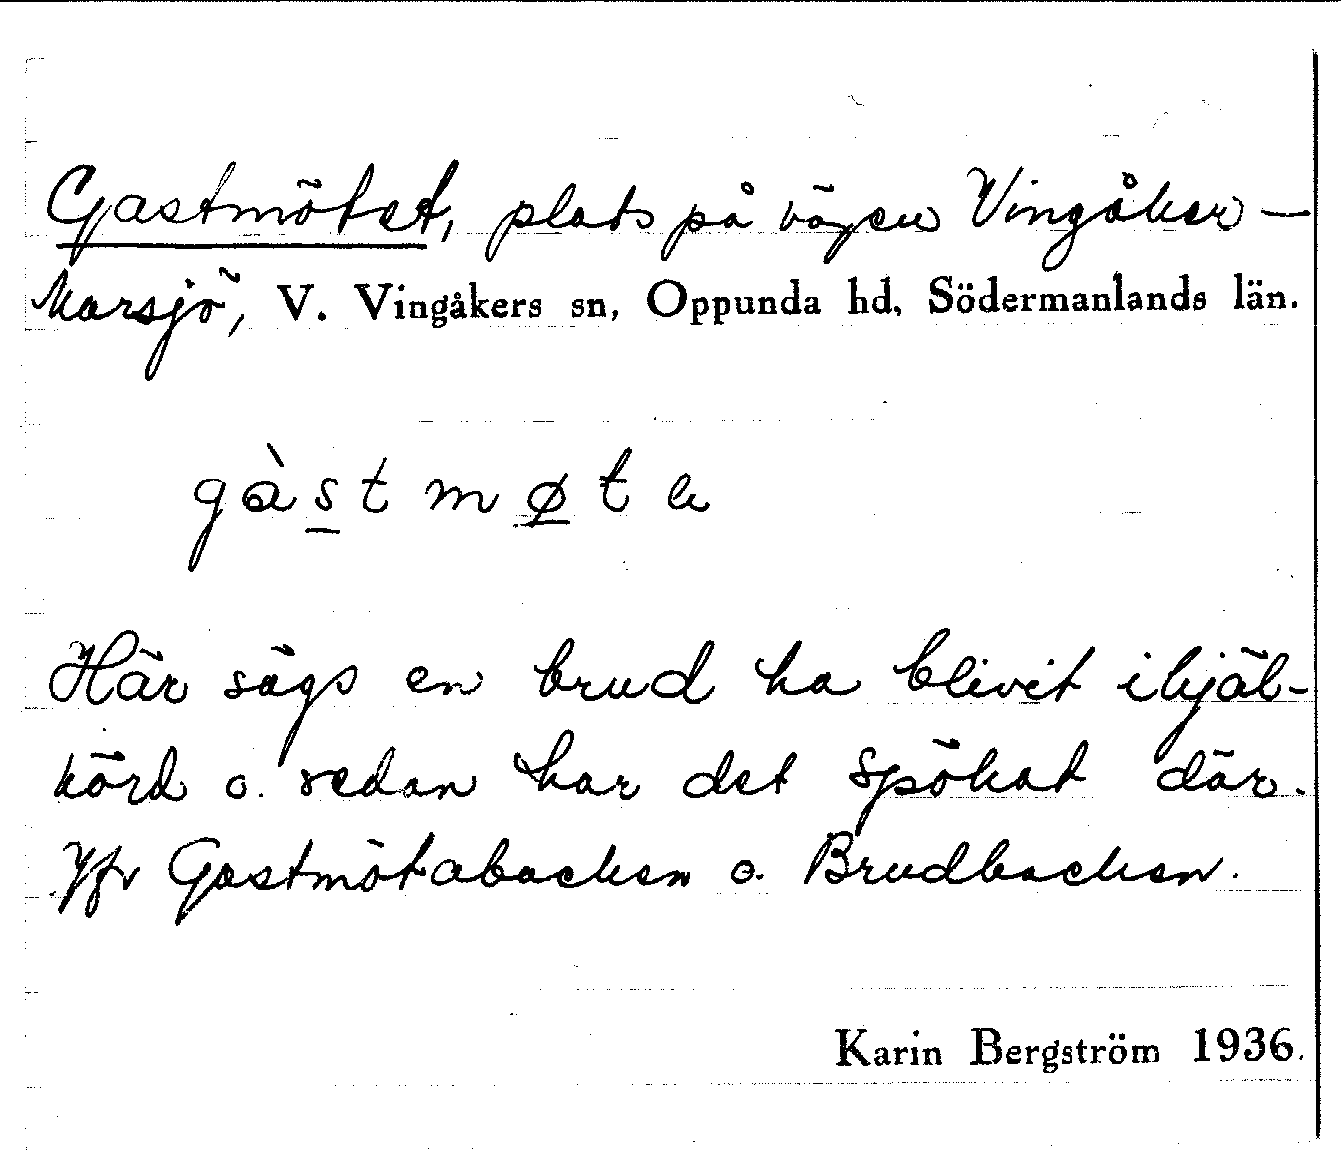 Gastmötet, plats på vägen Vingåker –
Marsjö, V. Vingåkers sn, Oppunda hd, Södermanlands län.
gàs̲t mø̲te
Här sägs en brud ha blivit ihjäl-
körd o. sedan har det spökat där.
Jfr Gastmötabacken o. Brudbacken.
Karin Bergström 1936.